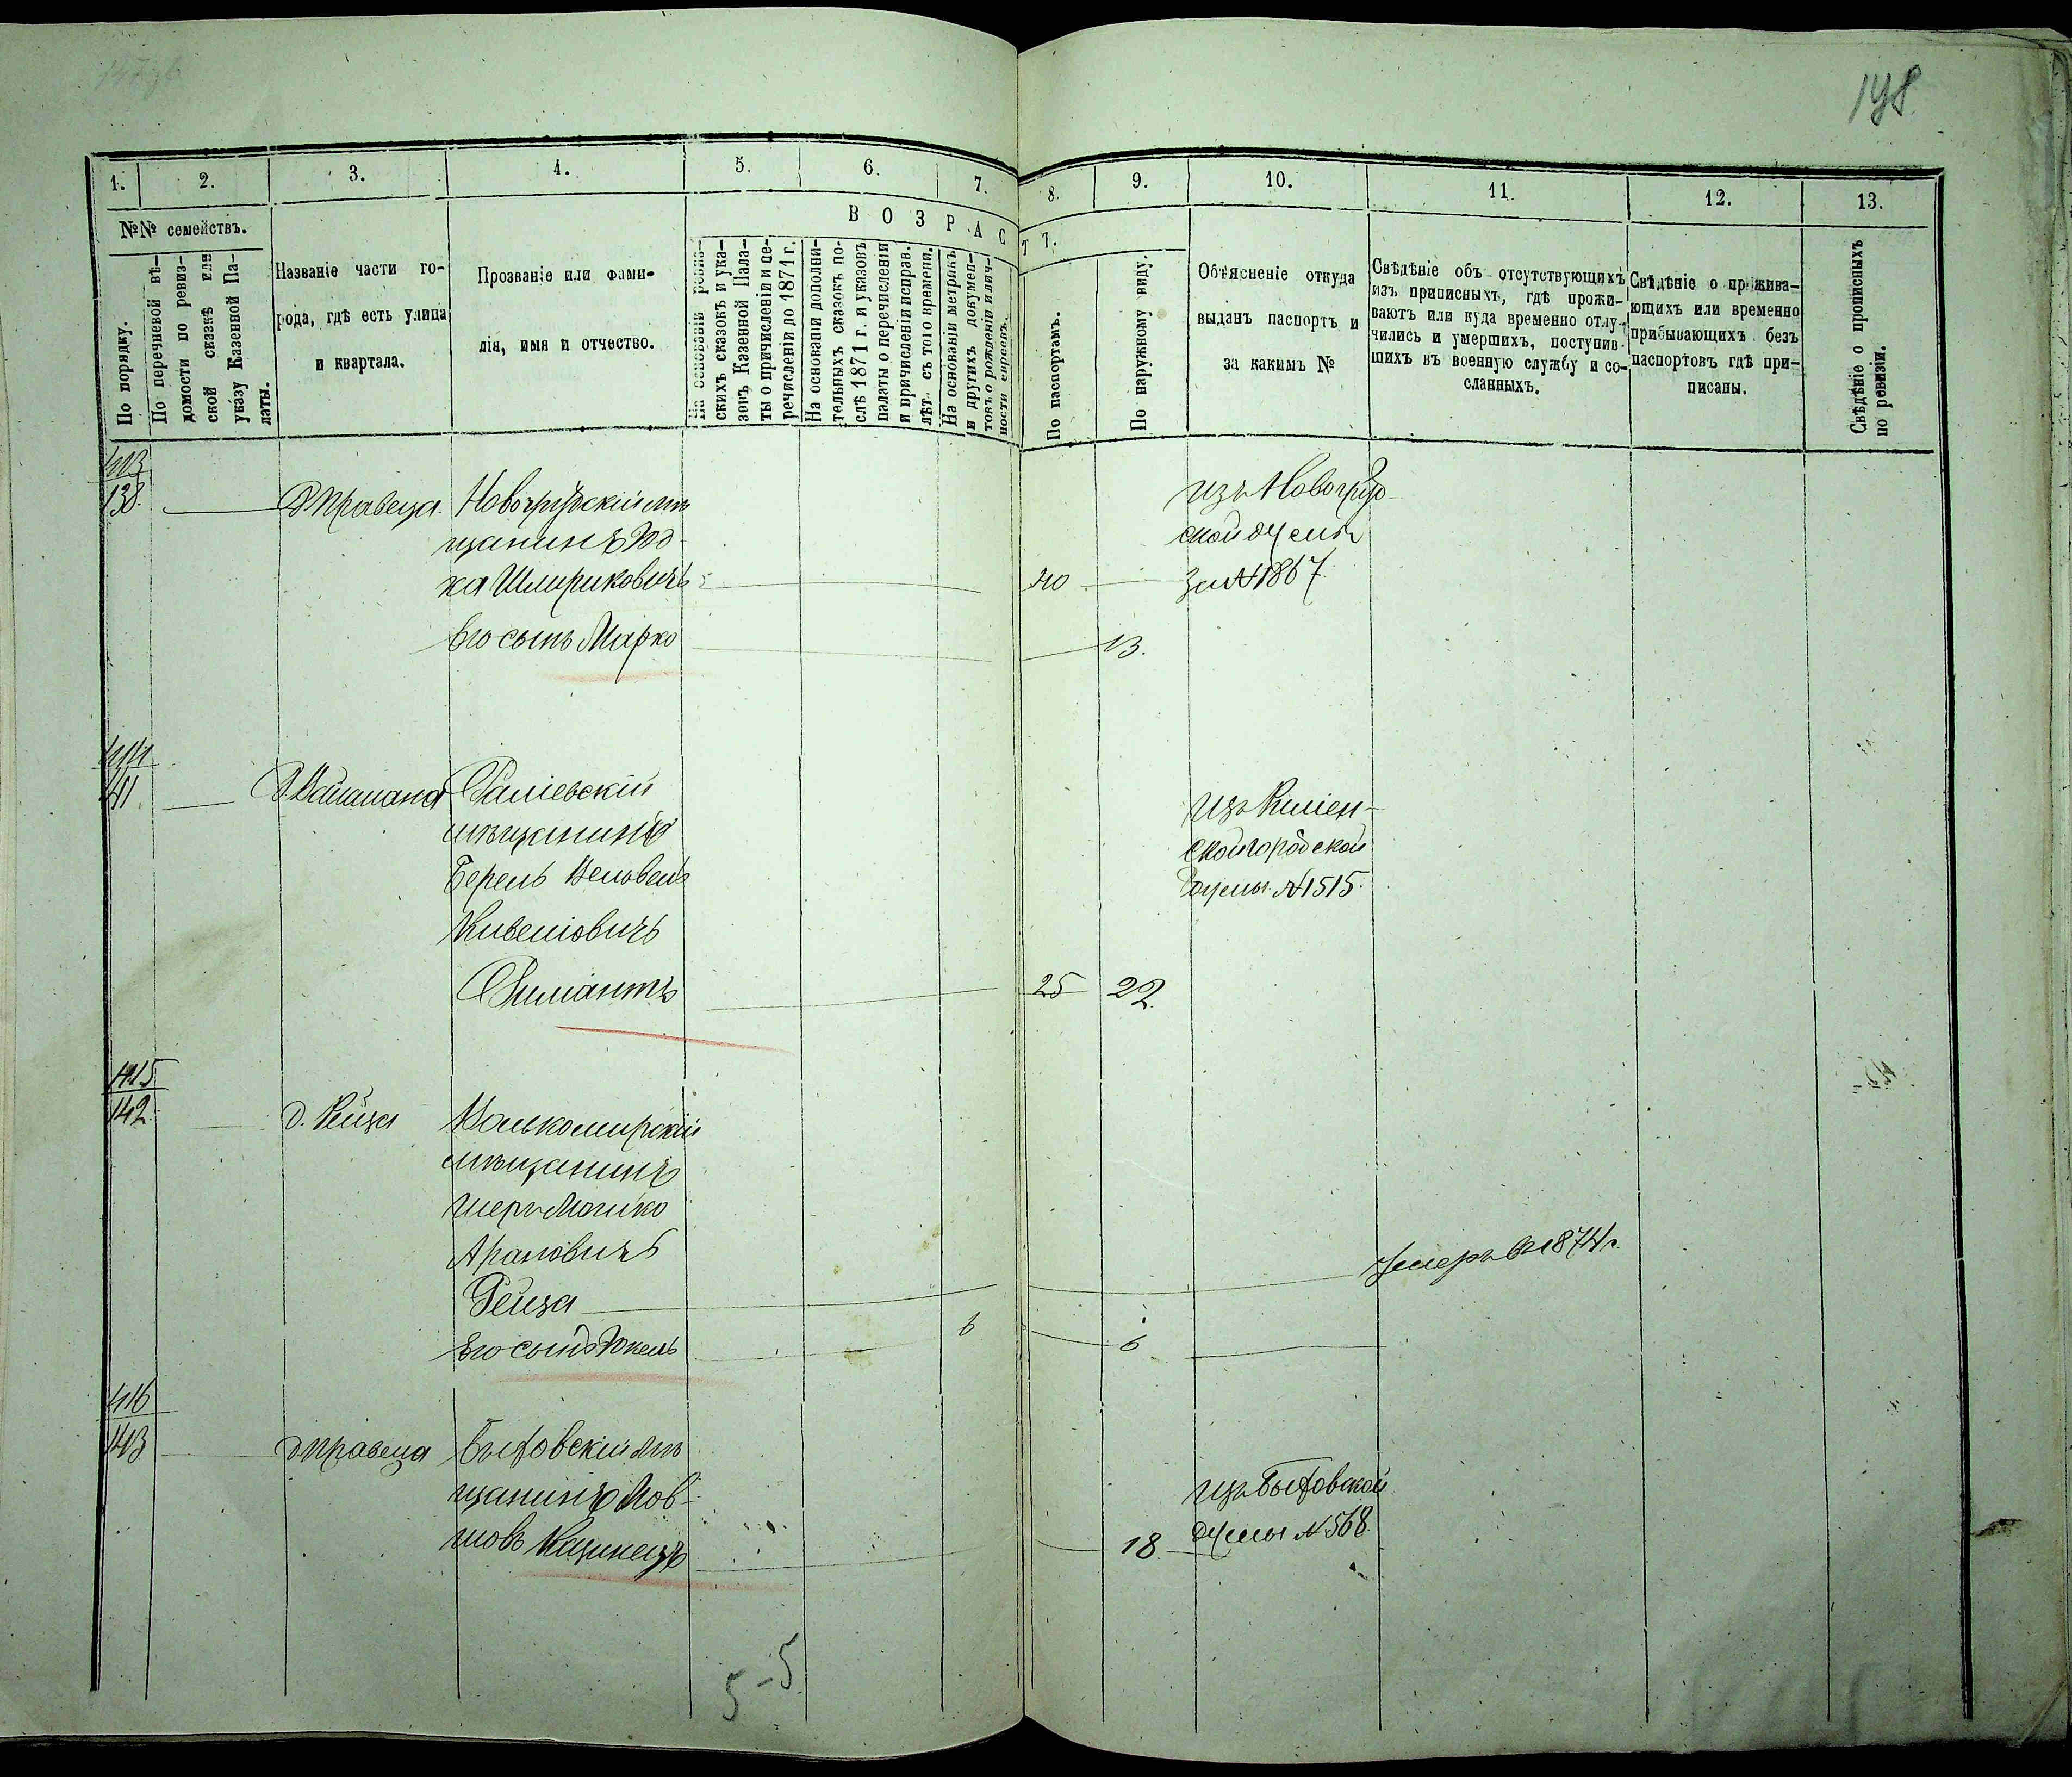 198
1.
2.
3.
4.
5.
6.
7.
8.
9.
10.
11.
12.
13.
№№ семействъ.
По порядку.
По перечневой вѣ-
домости по ревиз-
ской сказкѣ или
указу Казенной Па-
латы.
Названіе части го-
рода, гдѣ есть улица
и квартала.
Прозваніе или фами-
лія, имя и отчество.
ВОЗРАСТ
На основаніи ревиз-
скихъ сказокъ и ука-
зовъ Казенной Пала-
ты о причисленіи и пе-
речисленіи до 1871 г.
На основаніи дополни-
тельныхъ сказокъ по-
слѣ 1871 г. и указовъ
палаты о перечисленіи
и причисленіи исправ.
лѣт. съ того времени.
На основаніи метрикъ
и другихъ докумен-
товъ о рожденіи и лич-
ности евреевъ.
По паспортамъ.
По наружному виду.
Объясненіе откуда
выданъ паспортъ и
за какимъ №
Свѣдѣніе объ отсутствующихъ
изъ приписныхъ, гдѣ прожи-
ваютъ или куда временно отлу-
чились и умершихъ, поступив-
шихъ въ военную службу и со-
сланныхъ.
Свѣдѣніе о прожива-
ющихъ или временно
прибывающихъ безъ
паспортовъ гдѣ при-
писаны.
Свѣдѣніе о прописныхъ
по ревизіи.
413
138.
Новогрудскій мѣ
щанинъ
Шмериковичъ
40
изъ Новогруд-
ской думы
за №1867.
Его сынъ Марко
13.
414
141.
мѣщанинъ
Берель
25
22.
изъ
ской городской
думы №1515.
415
142.
д. Рейза
Вилькомирскій
мѣщанинъ
Шеръ Мошко
Ароновичъ
Рейза
Умеръ въ 1874 г.
Его сынъ Юкель
6
6
416
143
Быховскій мѣ
щанинъ Лов-
18.
изъ Быховской
думы №568.
5-5